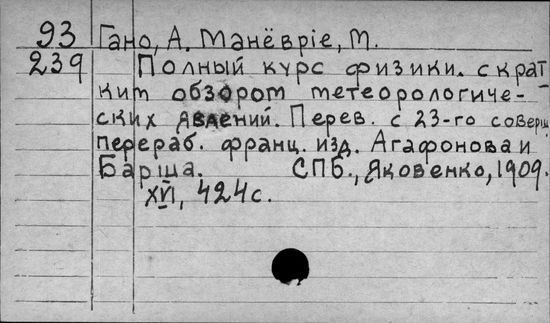 93 Гано, А. Манёврiе, М.
239 Полный курс физики. с крат
ким обзором метеорологиче-
ских явлений. Перев. с 23-го соверш
перераб. франц. изд. Агафонова и
Барща. СПб., Яковенко, 1909.
XVI, 424 с.